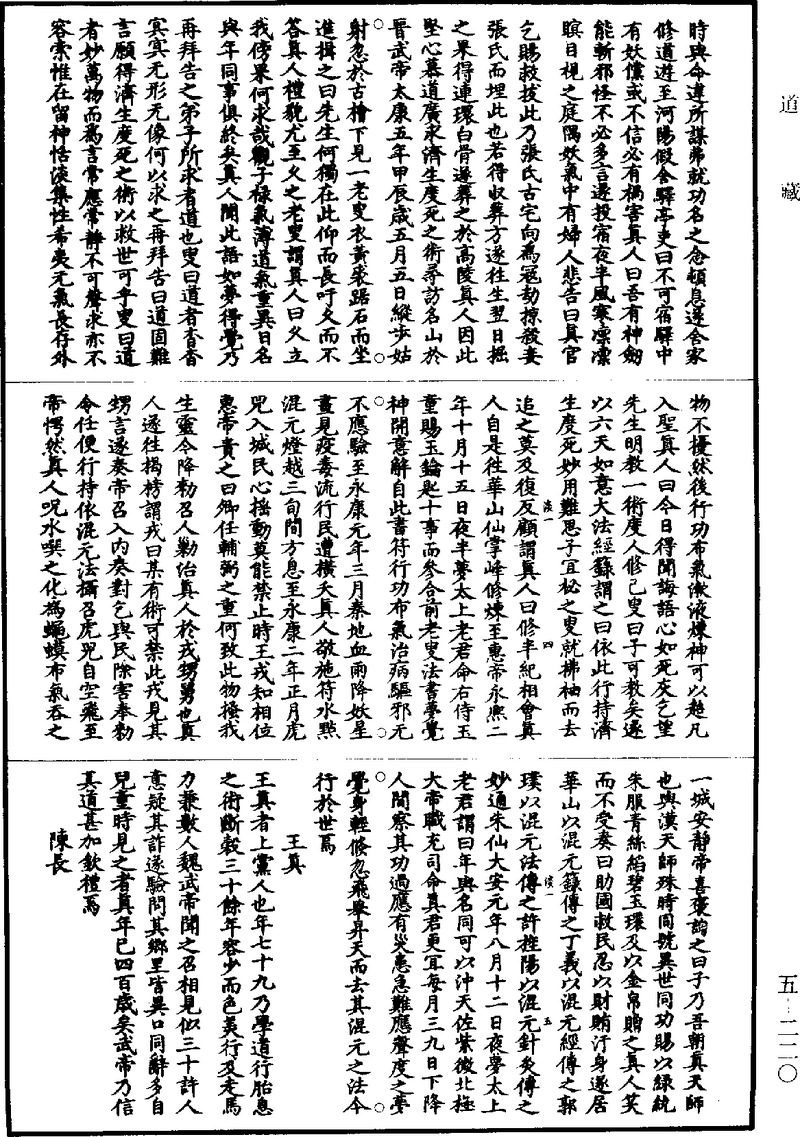 道藏
時與命違所謀弗就功名之念頓息遂舍家
修道遊至河陽假舍驛亭吏曰不可宿驛中
有妖儻或不信必有禍害真人曰吾有神劒
能斬邪怪不必多言遂投宿夜半風寒凛凛
瞑目視之庭隅妖氣中有婦人悲告曰真官
乞賜救拔此乃張氏古宅向為寇劫掠殺妾
張氏而埋此也若得収葬方遂往生翌日掘
之果得連環白骨遂葬之於高陵真人因此
堅心慕道廣求濟生度死之術尋訪名山於
晉武帝太康五年甲辰歳五月五日縱步姑
射忽於古檜下見一老叟衣黃裘踞石而坐
進揖之曰先生何獨在此仰而長吁久而不
答真人禮貌尤至久之老叟謂真人曰久立
我傍果何求哉觀子祿氣薄道氣重異日名
與年同事俱終矣真人聞此語如夢得覺乃
再拜告之弟子所求者道也叟曰道者杳杳
冥冥无形无像何以求之再拜告曰道固難
言願得濟生度死之術以救世可乎叟曰道
者妙萬物而為言常應常靜不可聲求亦不
容索惟在留神恬淡集性希夷元氣長存外
物不擾然後行功布氣漱液煉神可以超凡
入聖真人曰今日得聞誨語心如死灰乞望
先生明教一術度人修己叟曰子可教矣遂
以六天如意大法經籙謂之曰依此行持濟
生度死妙用難思子宜秘之叟就拂袖而去
追之莫及復反顧謂真人曰修半紀相會真
人自是往華山仙掌峰修煉至惠帝永熙二
年十月十五日夜半夢太上老君命右侍玉
童賜玉鑰匙十事而參合前老叟法書夢覺
神開意解自此書符行功布氣治病驅邪元
不應驗至永康元年三月秦地血雨降妖星
晝見疫毒流行民遭橫夭真人敬施符水點
混元燈越三旬間方息至永康二年正月虎
兕入城民心摇動莫能禁止時王戎知相位
惠帝責之曰卿任輔弼之重何致此物搔我
生靈令降勑召人勦治真人於戎甥舅也真
人遂往揭榜謂戎曰某有術可禁此戎見其
甥言遂奏帝召入内奏對乞與民除害奉勑
令任便行持依混元法攝召虎兕自空飛至
帝愕然真人呪水噀之化為蠅蟆布氣吞之
一城安靜帝喜褒詢之曰子乃吾朝真天師
也與漢天師殊時同號異世同功賜以緑統
朱服青絲絛碧玉環及以金帛贈之真人笑
而不受奏曰助國救民忍以財賄汙身遂居
華山以混元籙傳之丁義以混元經傳之郭
璞以混元法傳之許旌陽以混元針灸傳之
妙通朱仙大安元年八月十二日夜夢太上
老君謂曰年與名同可以沖天佐紫微北極
大帝職充司命真君更宜每月三九日下降
人間察其功過應有災患急難應聲度之夢
覺身輕倏忽飛舉昇天而去其混元之法今
行於世焉
王真
王真者上黨人也年七十九乃學道行胎息
之術斷穀三十餘年容少而色美行及走馬
力兼數人魏武帝聞之召相見似三十許人
意疑其詐遂驗問其鄉里皆異口同辭多自
兒童時見之者真年已四百歳矣武帝乃信
其道甚加欽禮焉
陳長
淡一 四
淡一 五
五-二二〇